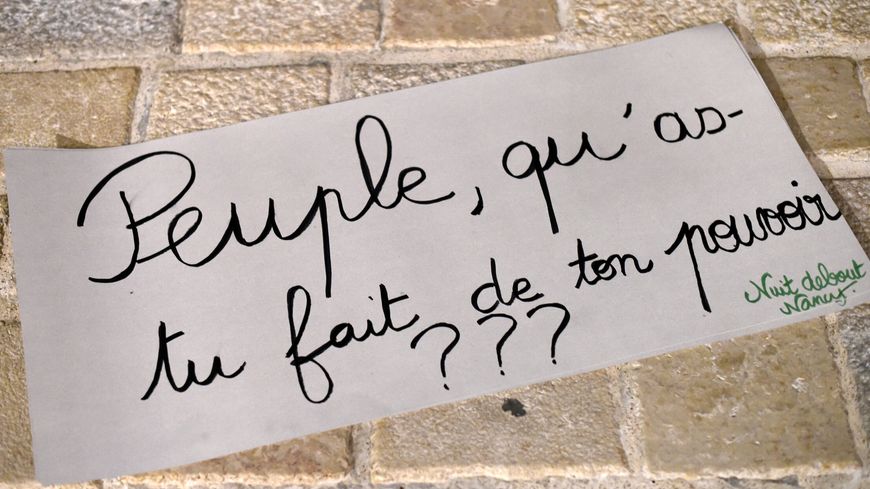 Peuple, qu'as-
tu fait de ton pouvoir
???
Nuit debout
Nancy.